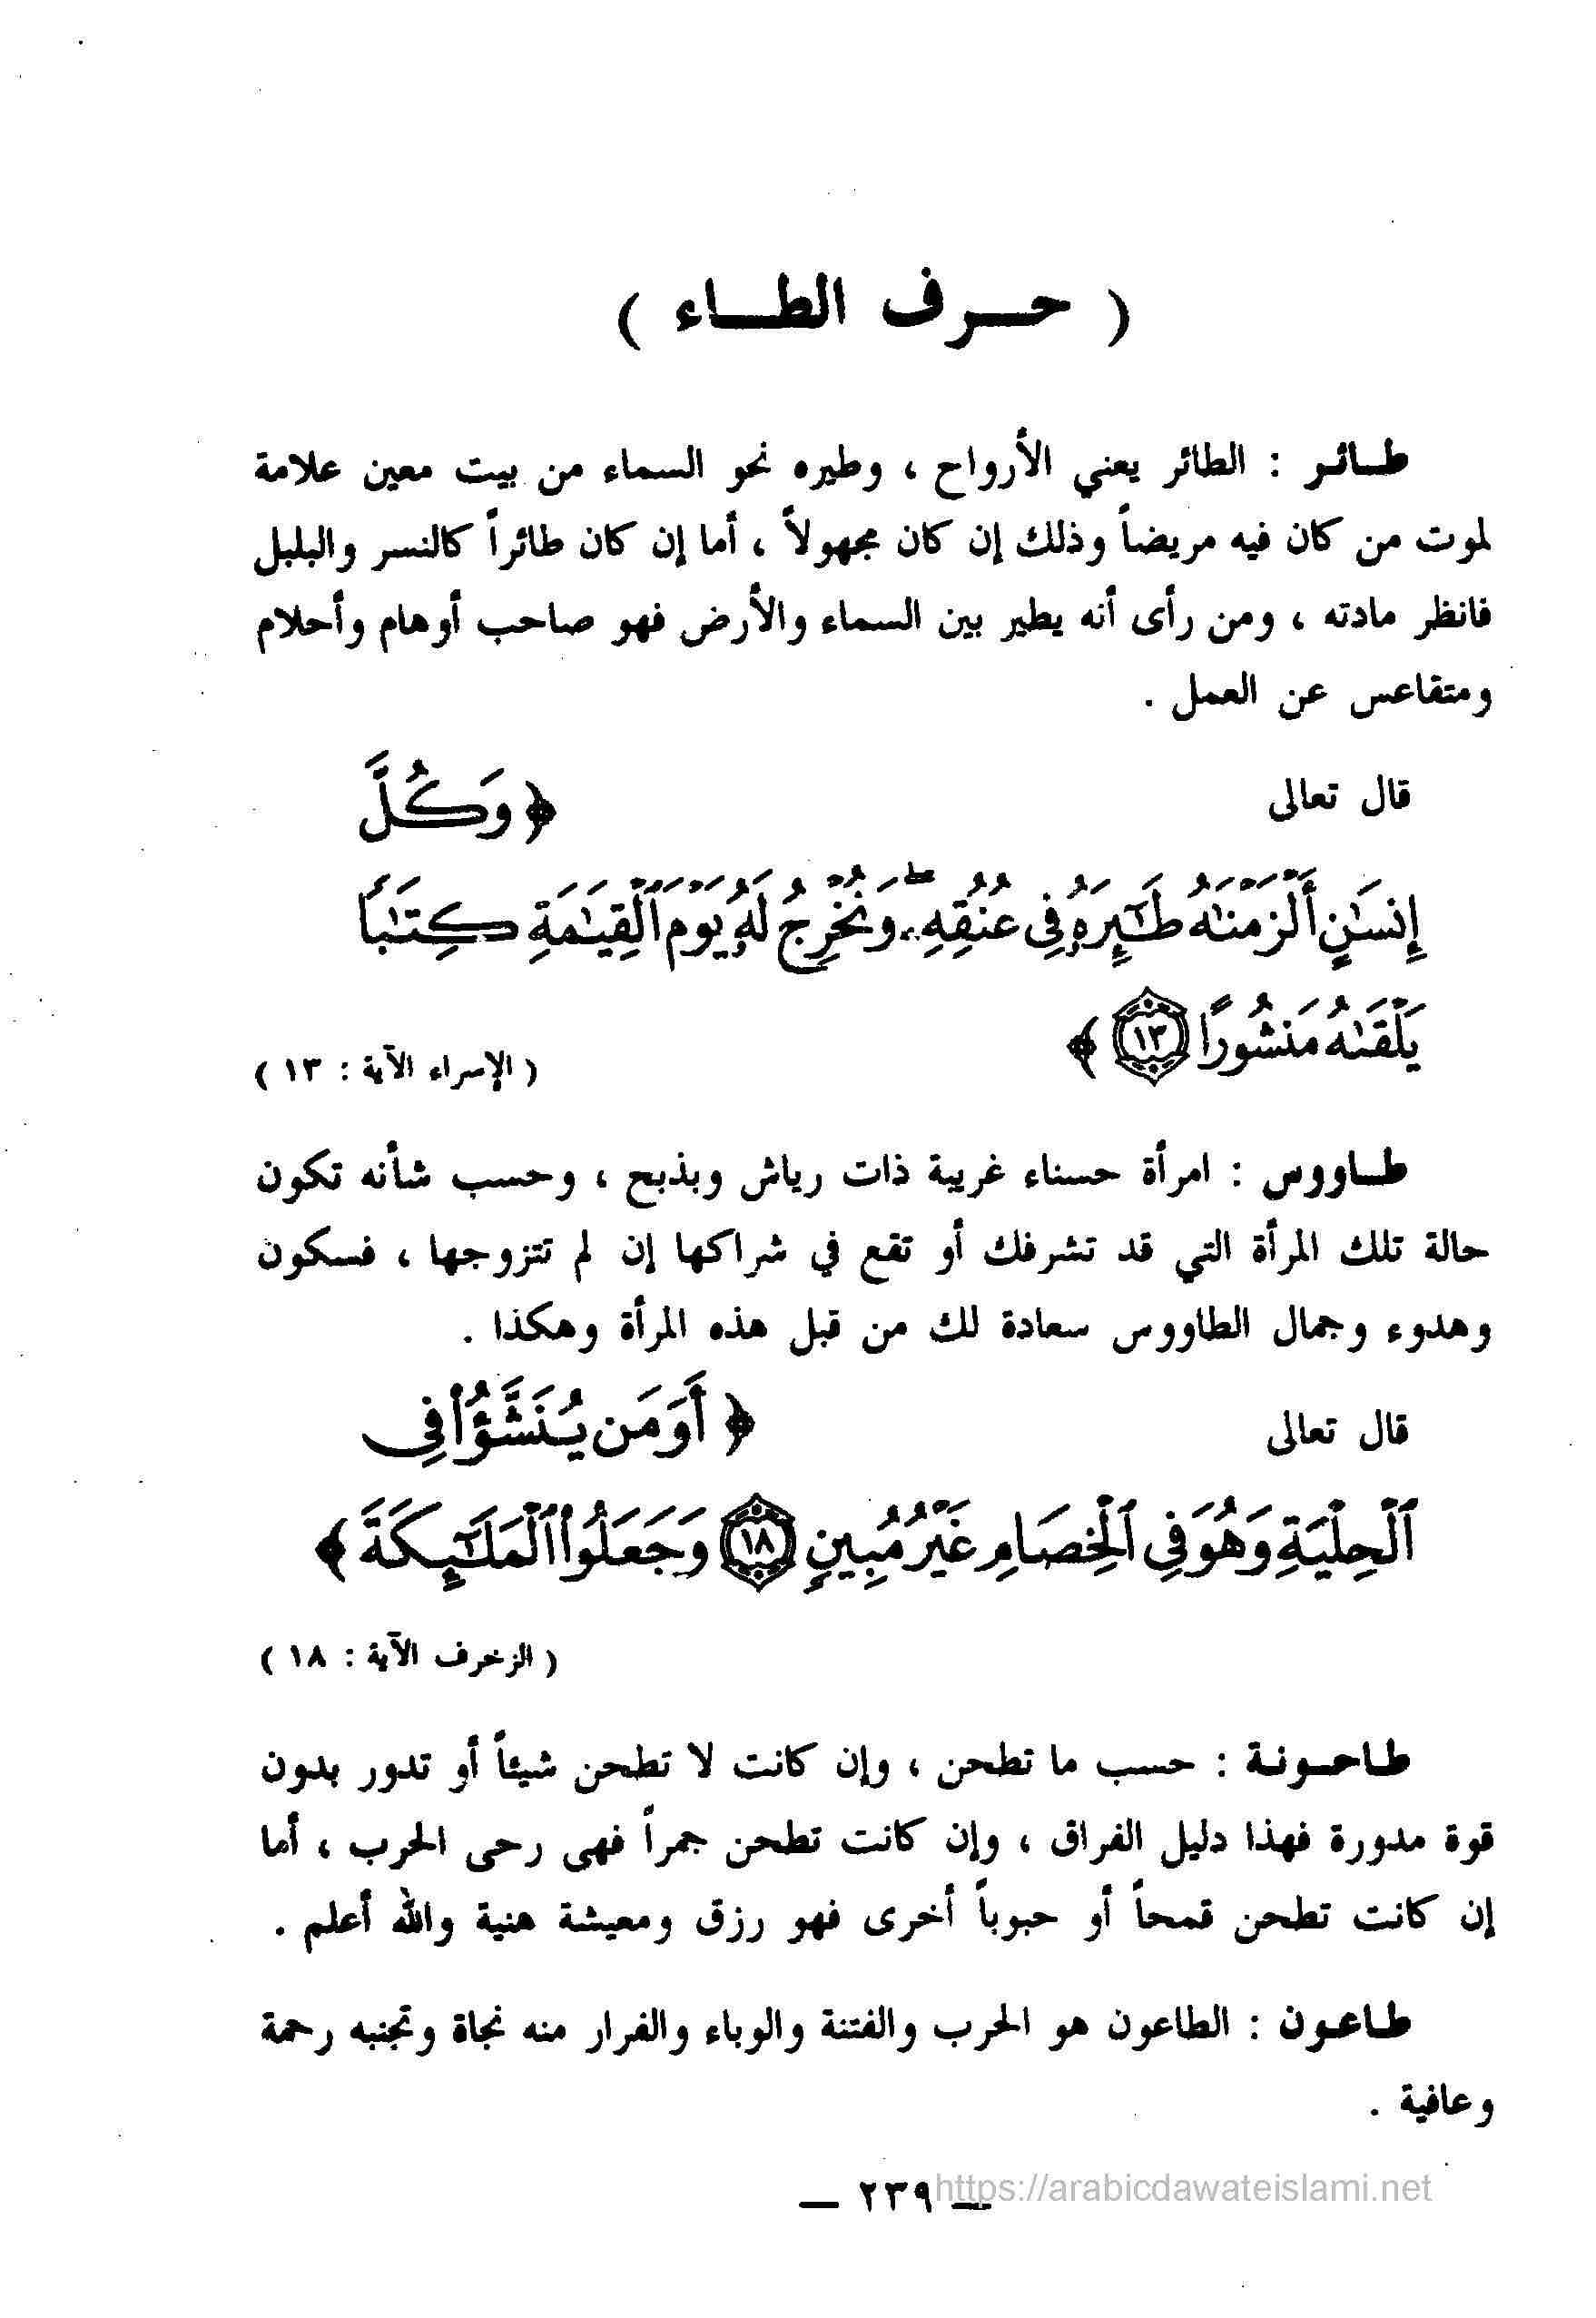 ( حـــرف الطـــاء )
طـائـر : الطائر يعني الأرواح ، وطيره نحو السماء من بيت معين علامة
لموت من كان فيه مريضاً وذلك إن كان مجهولاً ، أما إن كان طائراً كالنسر والبلبل
فانظر مادته ، ومن رأى أنه يطير بين السماء والأرض فهو صاحب أوهام وأحلام
ومتقاعس عن العمل .
قال تعالى ﴿ وَكُلَّ
إِنسَٰنٍ أَلْزَمْنَٰهُ طَٰٓئِرَهُۥ فِى عُنُقِهِۦ ۖ وَنُخْرِجُ لَهُۥ يَوْمَ ٱلْقِيَٰمَةِ كِتَٰبًا
يَلْقَىٰهُ مَنشُورًا ١٣ ﴾
( الإسراء الآية : ١٣ )
طـاووس : امرأة حسناء غريبة ذات رياش وبذبح ، وحسب شأنه تكون
حالة تلك المرأة التي قد تشرفك أو تقع في شراكها إن لم تتزوجها ، فسكون
وهدوء وجمال الطاووس سعادة لك من قبل هذه المرأة وهكذا .
قال تعالى ﴿ أَوَمَن يُنَشَّؤُا۟ فِى
ٱلْحِلْيَةِ وَهُوَ فِى ٱلْخِصَامِ غَيْرُ مُبِينٍ ١٨ وَجَعَلُوا۟ ٱلْمَلَٰٓئِكَةَ ﴾
( الزخرف الآية : ١٨ )
طـاحـونـة : حسب ما تطحن ، وإن كانت لا تطحن شيئاً أو تدور بدون
قوة مدورة فهذا دليل الفراق ، وإن كانت تطحن جمراً فهى رحى الحرب ، أما
إن كانت تطحن قمحاً أو حبوباً أخرى فهو رزق ومعيشة هنية والله أعلم .
طـاعـون : الطاعون هو الحرب والفتنة والوباء والفرار منه نجاة وتجنبه رحمة
وعافية .
— ٢٣٩ —
https://arabicdawateislami.net